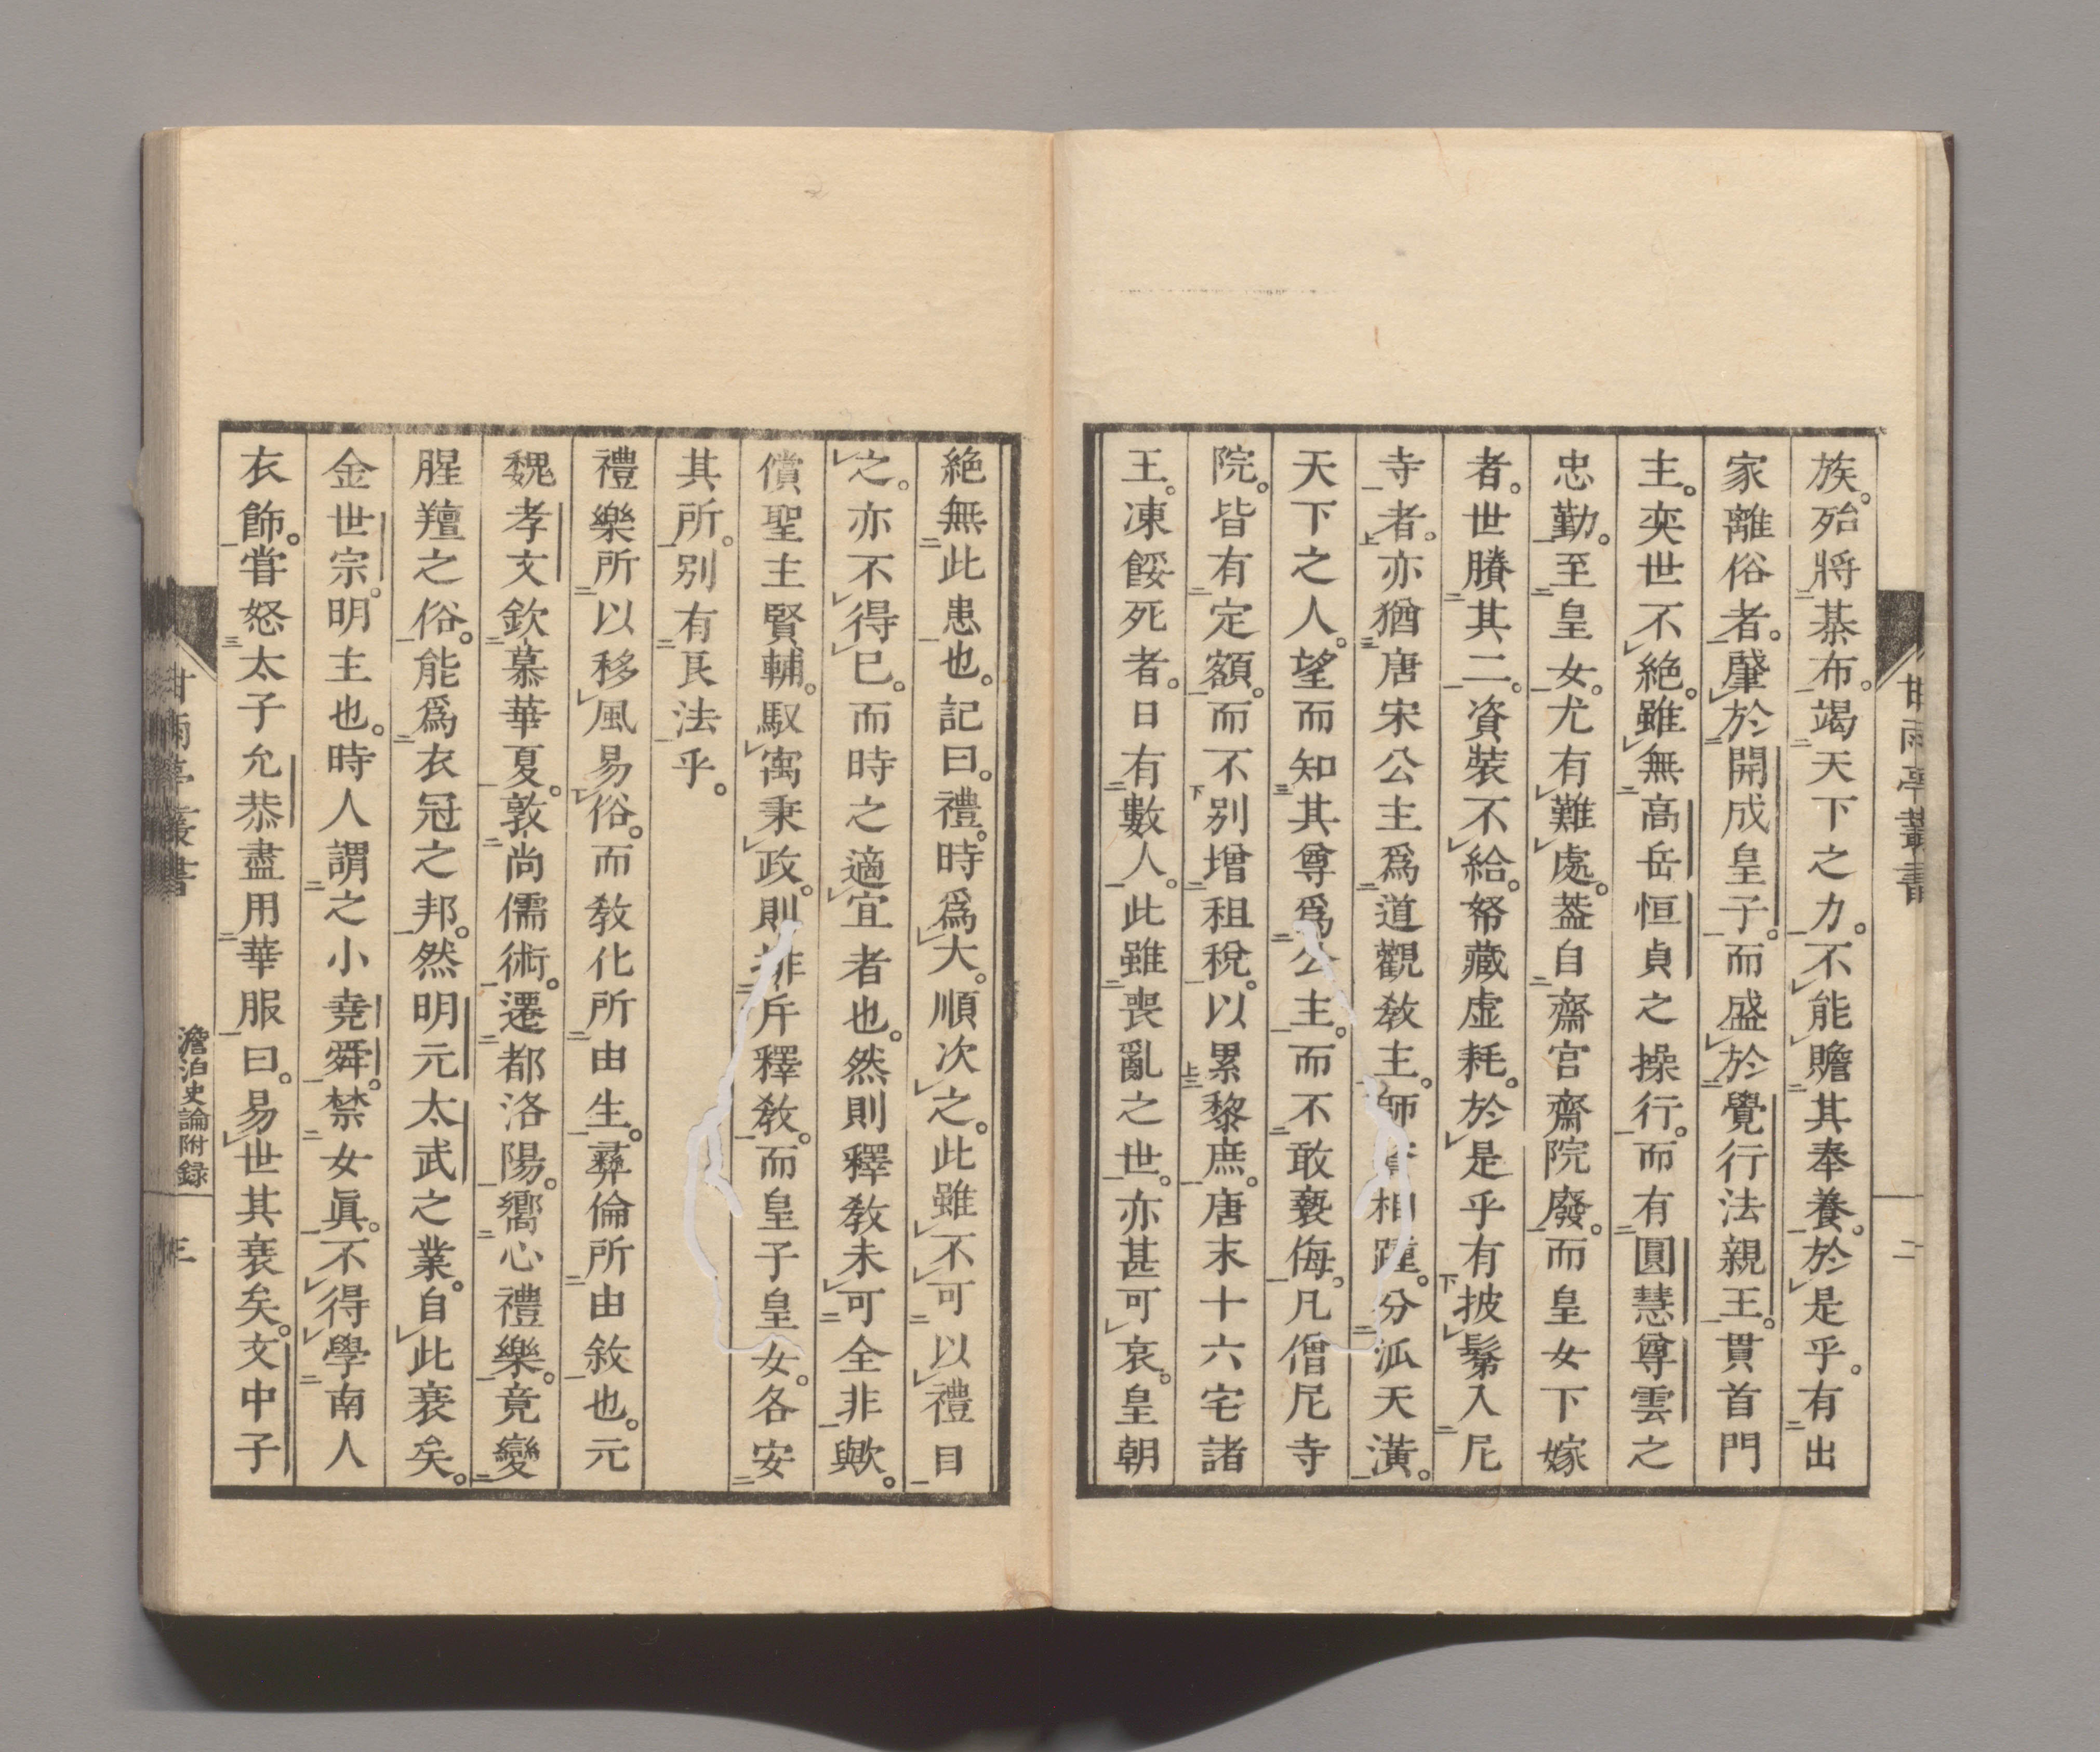 甘雨亭叢書
二
族。殆將棊布。竭天下之力。不能贍其奉養。於是乎。有出
家離俗者。肇於開成皇子。而盛於覺行法親王。貫首門
主。奕世不絶。雖無高岳恒貞之操行。而有圓慧尊雲之
忠勤。至皇女。尤有難處。葢自齋宮齋院廢。而皇女下嫁
者。世賸其二。資裝不給。帑藏虛耗。於是乎有披鬀入尼
寺者。亦猶唐宋公主爲道觀敎主。師相踵。分泒天潢。
天下之人。望而知其尊爲公主。而不敢褻侮。凡僧尼寺
院。皆有定額。而不別增租稅。以累黎庶。唐末十六宅諸
王。凍餒死者。日有數人。此雖喪亂之世。亦甚可哀。皇朝
絶無此患也。記曰。禮。時爲大。順次之。此雖不可以禮目
之。亦不得已。而時之適宜者也。然則釋敎未可全非歟。
償聖主賢輔。馭㝢秉政。則排斥釋敎。而皇子皇女。各安
其所。別有良法乎。
禮樂所以移風易俗。而敎化所由生。彛倫所由敘也。元
魏孝文欽慕華夏。敦尚儒術。遷都洛陽。嚮心禮樂。竟變
腥羶之俗。能爲衣冠之邦。然明元太武之業。自此衰矣。
金世宗。明主也。時人謂之小堯舜。禁女眞。不得學南人
衣飾。嘗怒太子允恭盡用華服曰。易世其衰矣。文中子
甘雨亭叢書
澹泊史論附録
三